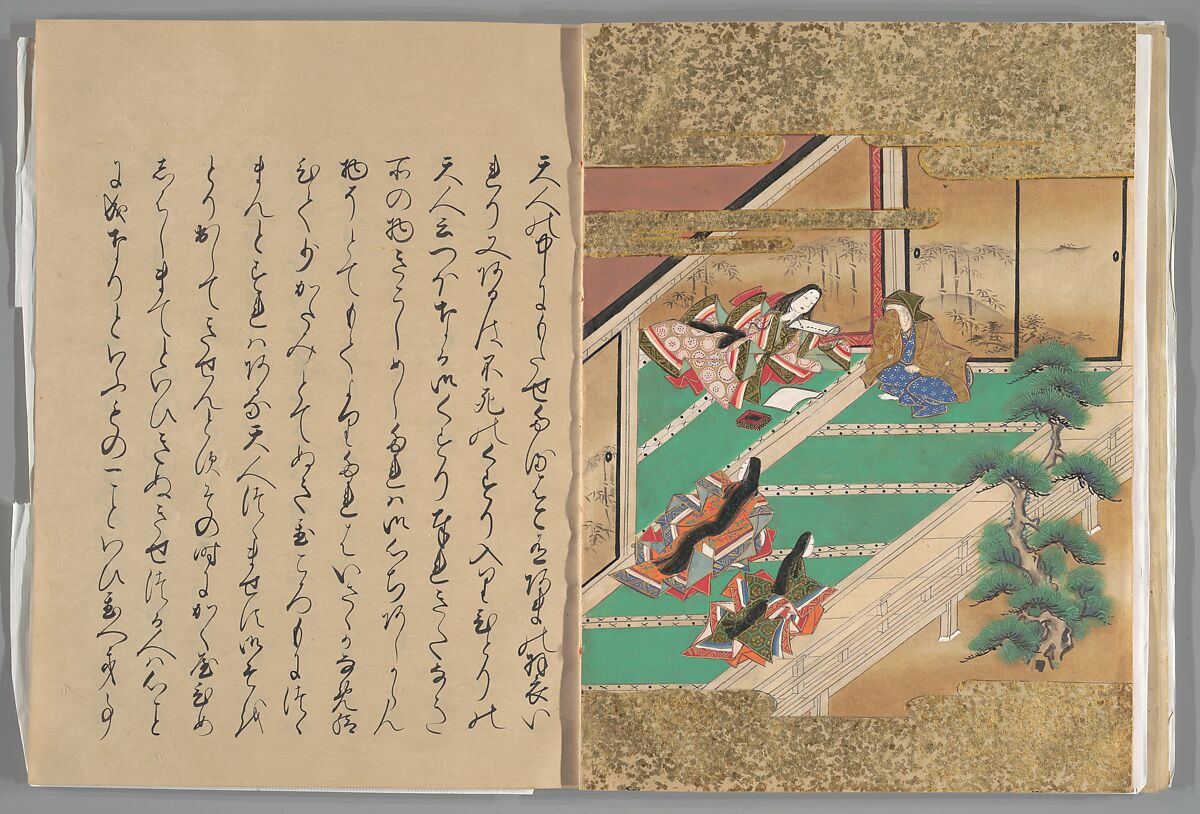 天人の中にもたせたるはこ有あまの羽衣い
れり又あるは不死のくすり入りひとりの
天人云つほなる御くすり奉れきたなき
所の物きこしめしたれは御心ちあしからん
物そとてもてよりたれはいさゝかなめ給
ひて少かたみとてぬきをくころもにつゝ
まんとすれはある天人つゝませす御そを
とり出してきせんとすその時にかくやひめ
しはしまてといひきぬきせつる人は心こと
に成なりといふもの一こといひをくへき事